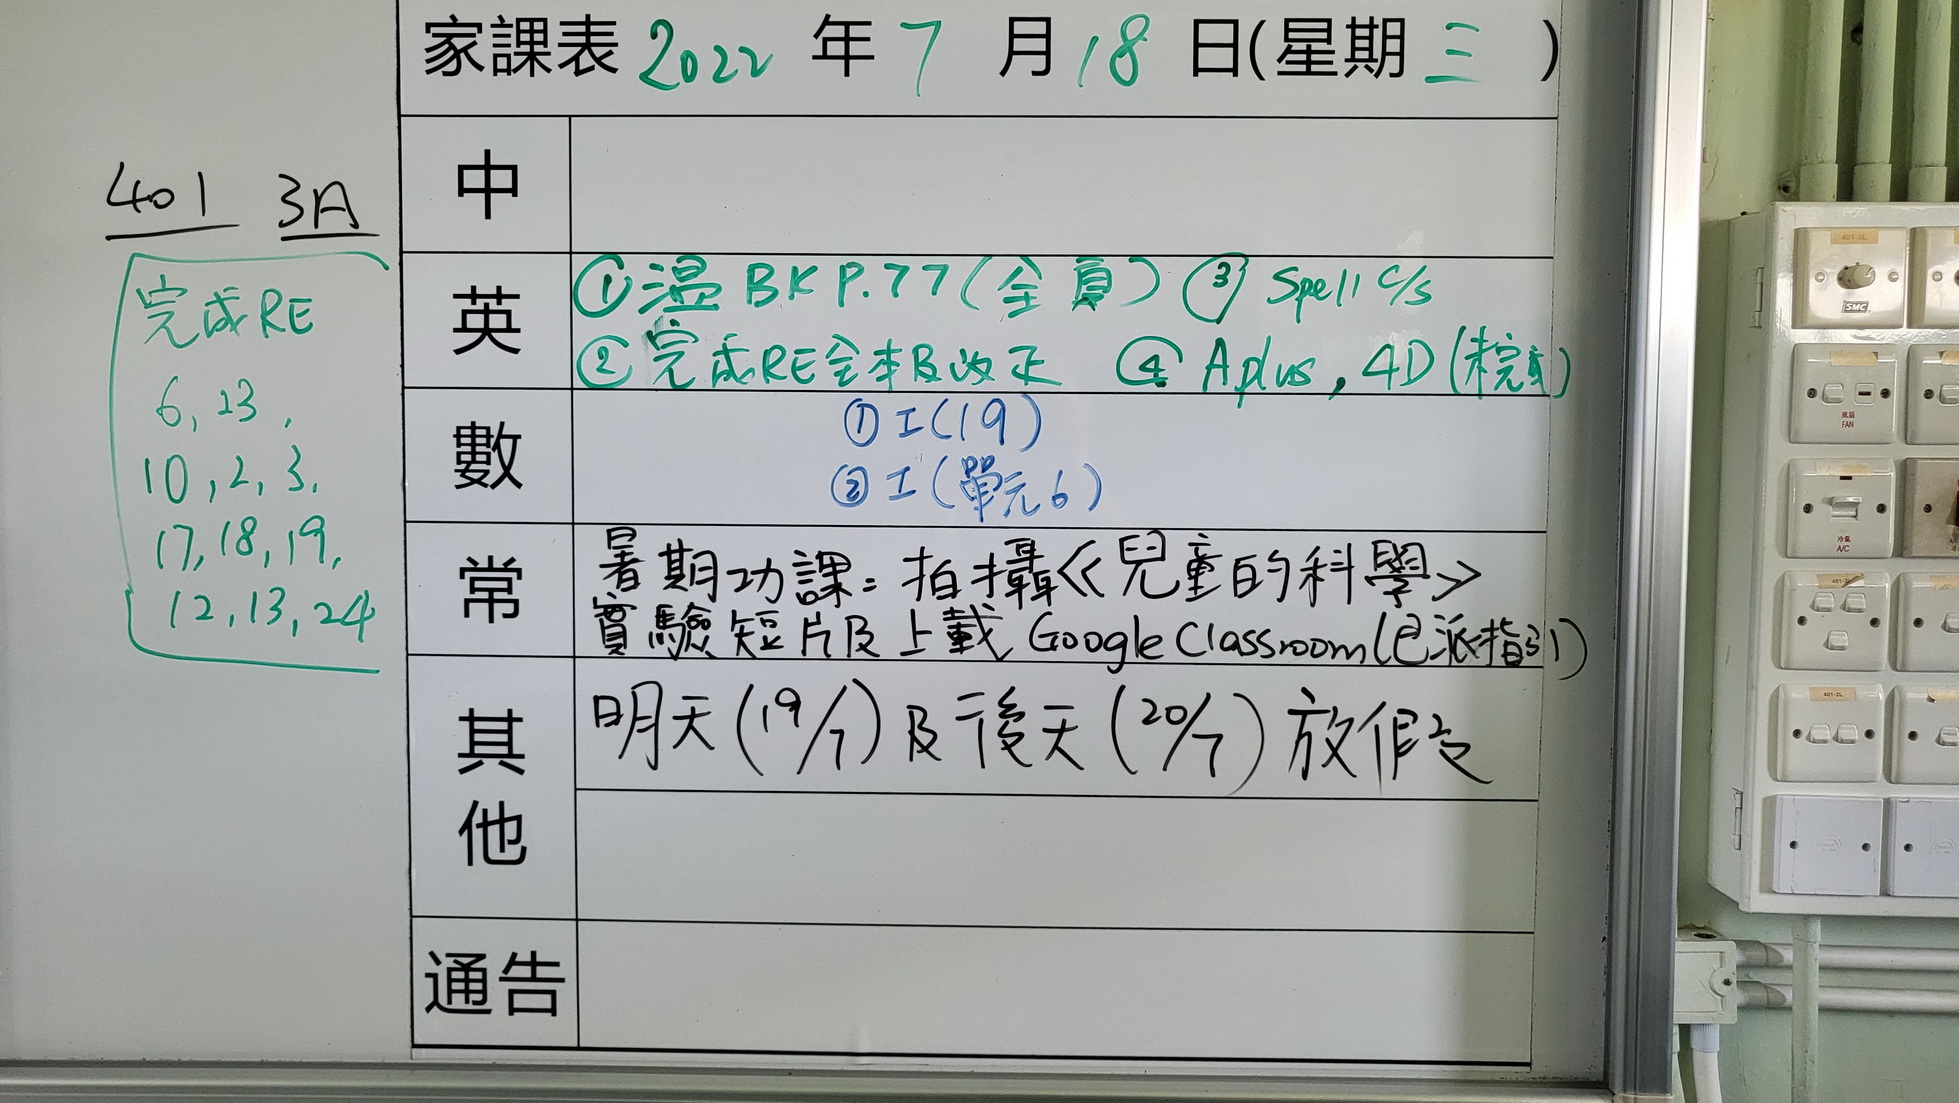 家課表 2022 年 7 月 18 日(星期 三 )
401 3A
完成RE
6, 23,
10, 2, 3,
17, 18, 19,
12, 13, 24
中
英
①溫 BK P.77 (全頁) ③ Spell C/S
②完成RE全本及改正 ④ Aplus, 4D (未完成)
數
① I (19)
② I (單元6)
常
暑期功課: 拍攝《兒童的科學》
實驗短片及上載 Google Classroom (已派指引)
其他
明天 (19/7) 及後天 (20/7) 放假
通告
SMC
風扇
FAN
冷氣
A/C